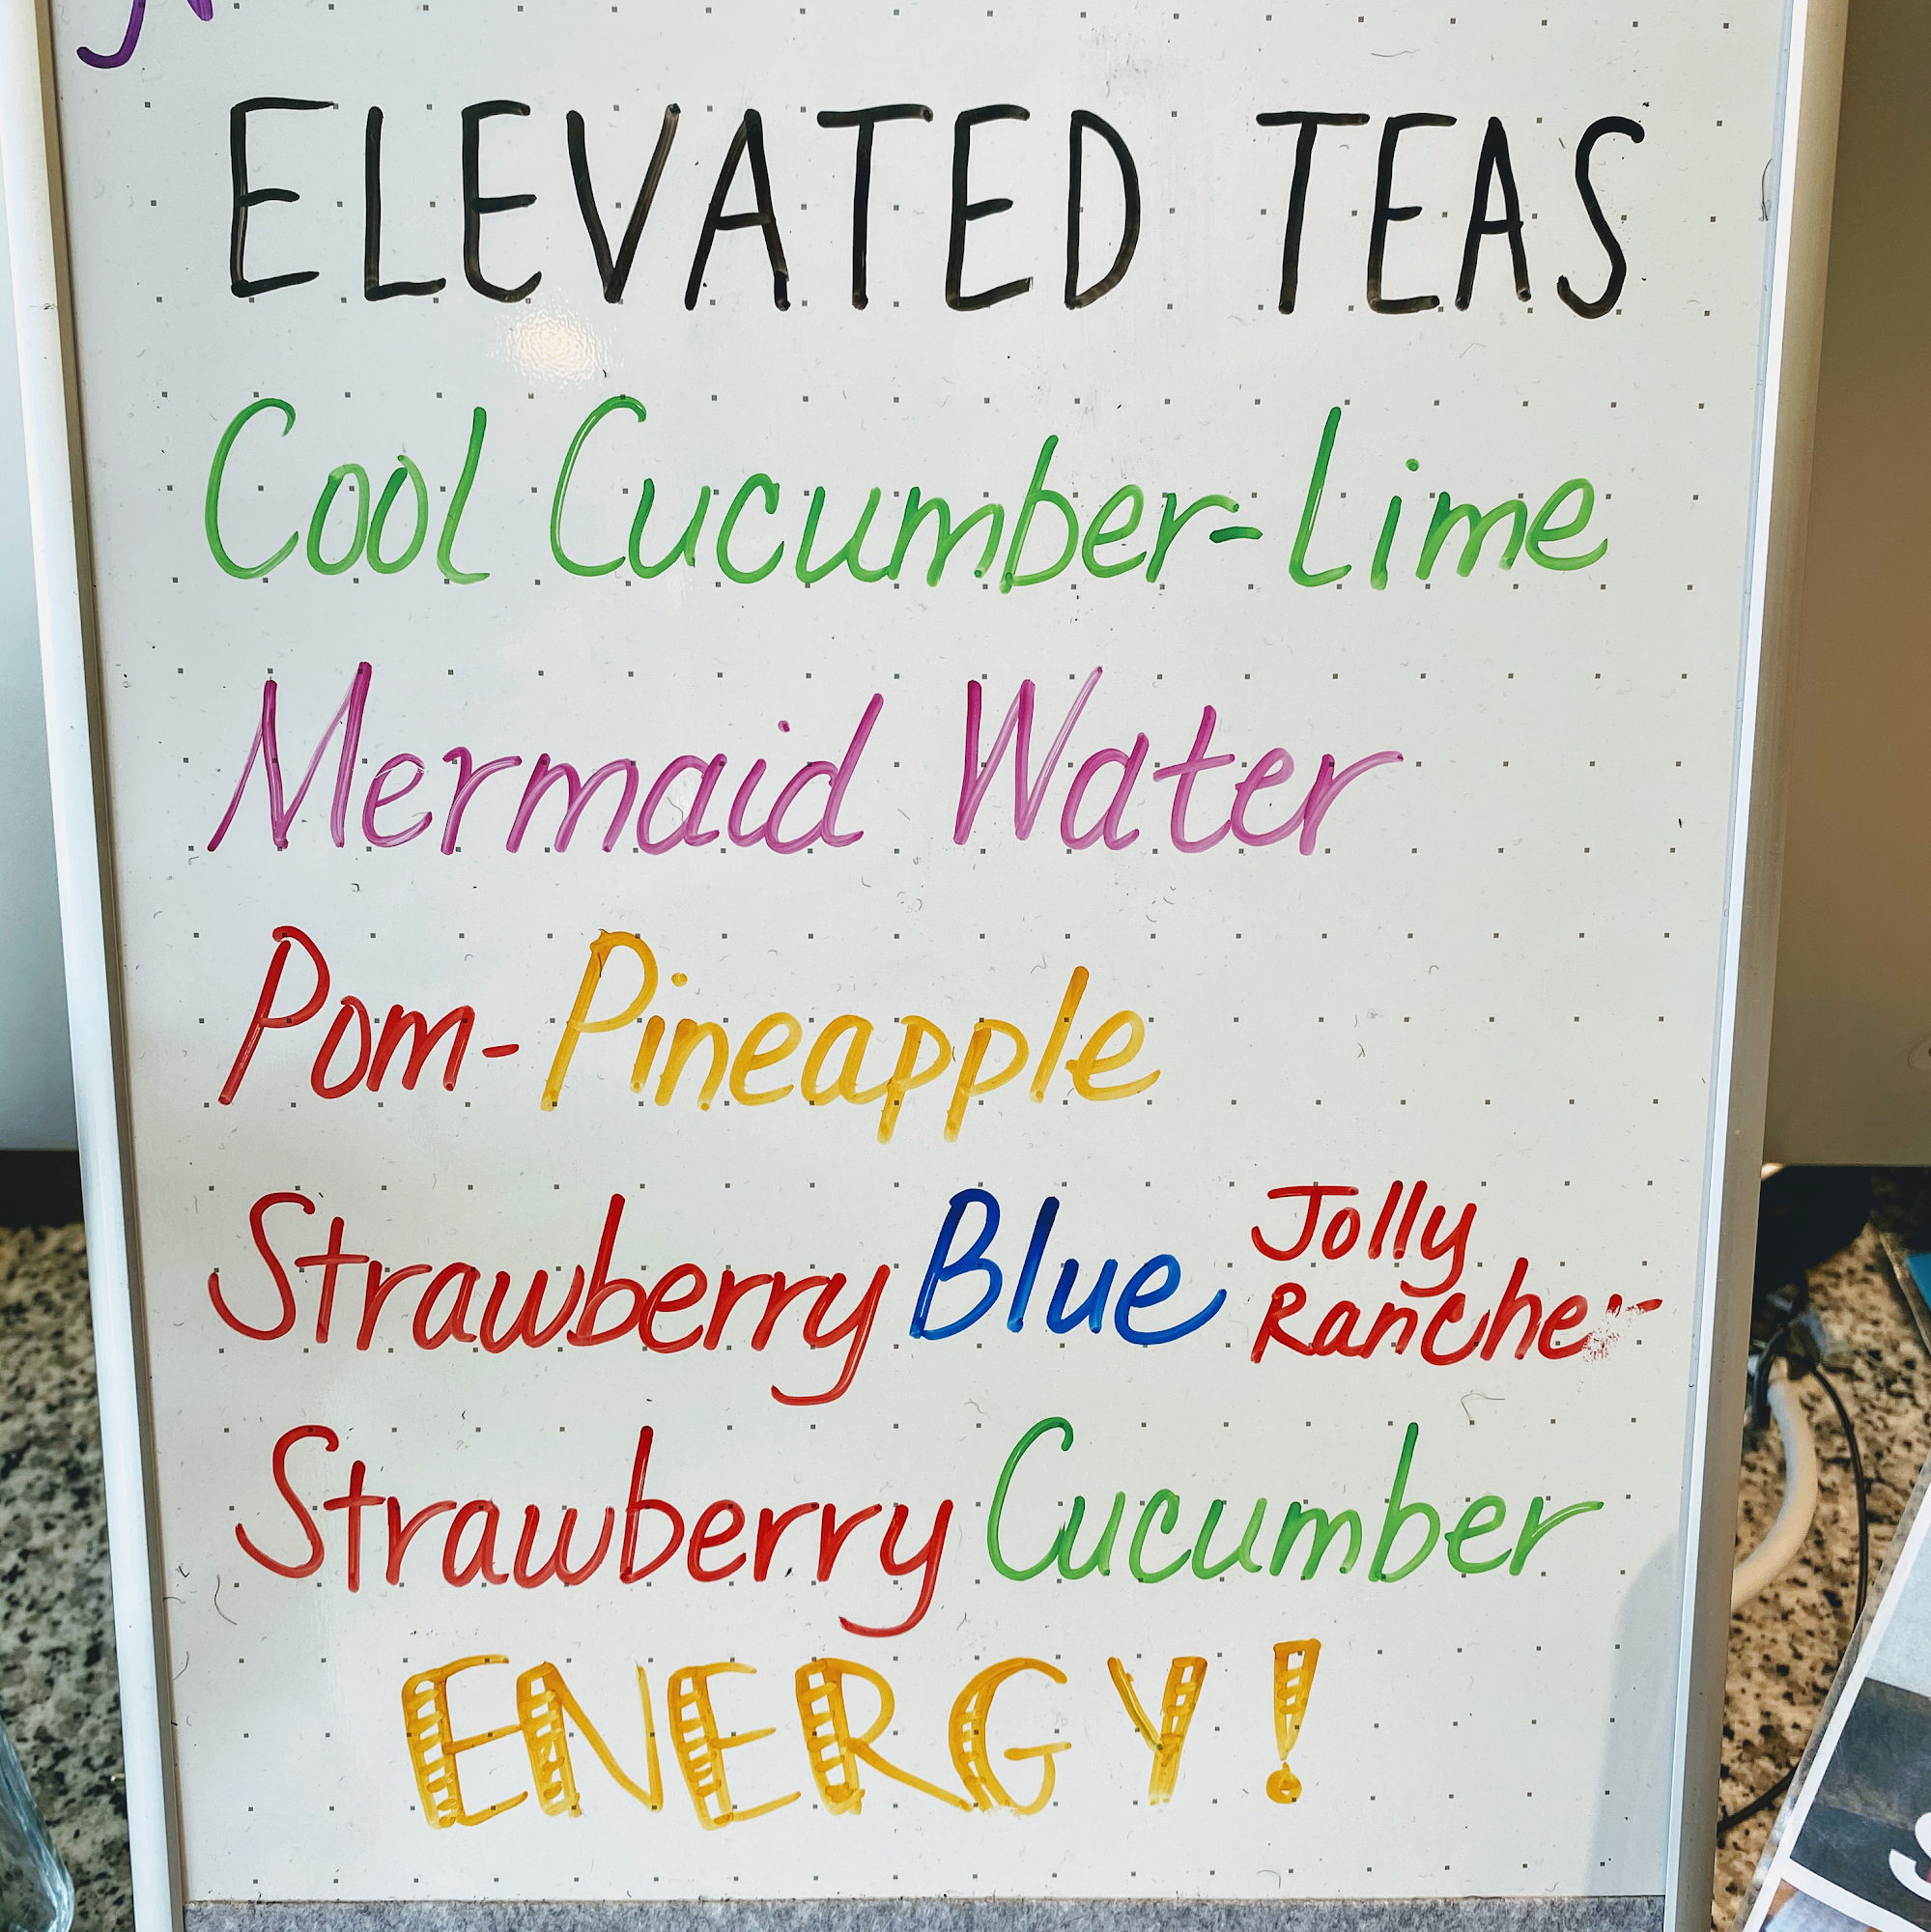 ELEVATED TEAS
Cool Cucumber-Lime
Mermaid Water
Pom-Pineapple
Strawberry Blue Jolly
Rancher
Strawberry Cucumber
ENERGY!